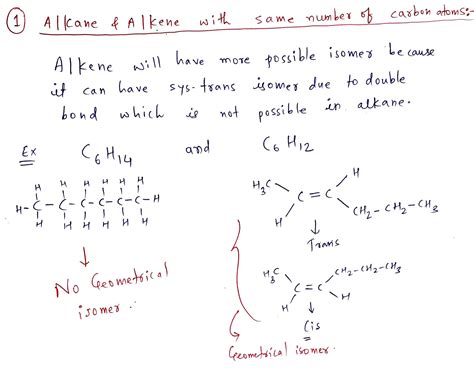 ① Alkane & Alkene with same number of carbon atoms:-
Alkene will have more possible isomer because
it can have sys-trans isomer due to double
bond which is not possible in alkane.
Ex C6H14 and C6H12
H H H H H H
H-C-C-C-C-C-C-H
H H H H H H
No Geometrical
isomer.
H3C H
C=C
H CH2-CH2-CH3
Trans
H3C CH2-CH2-CH3
C=C
H H
Cis
Geometrical isomer.